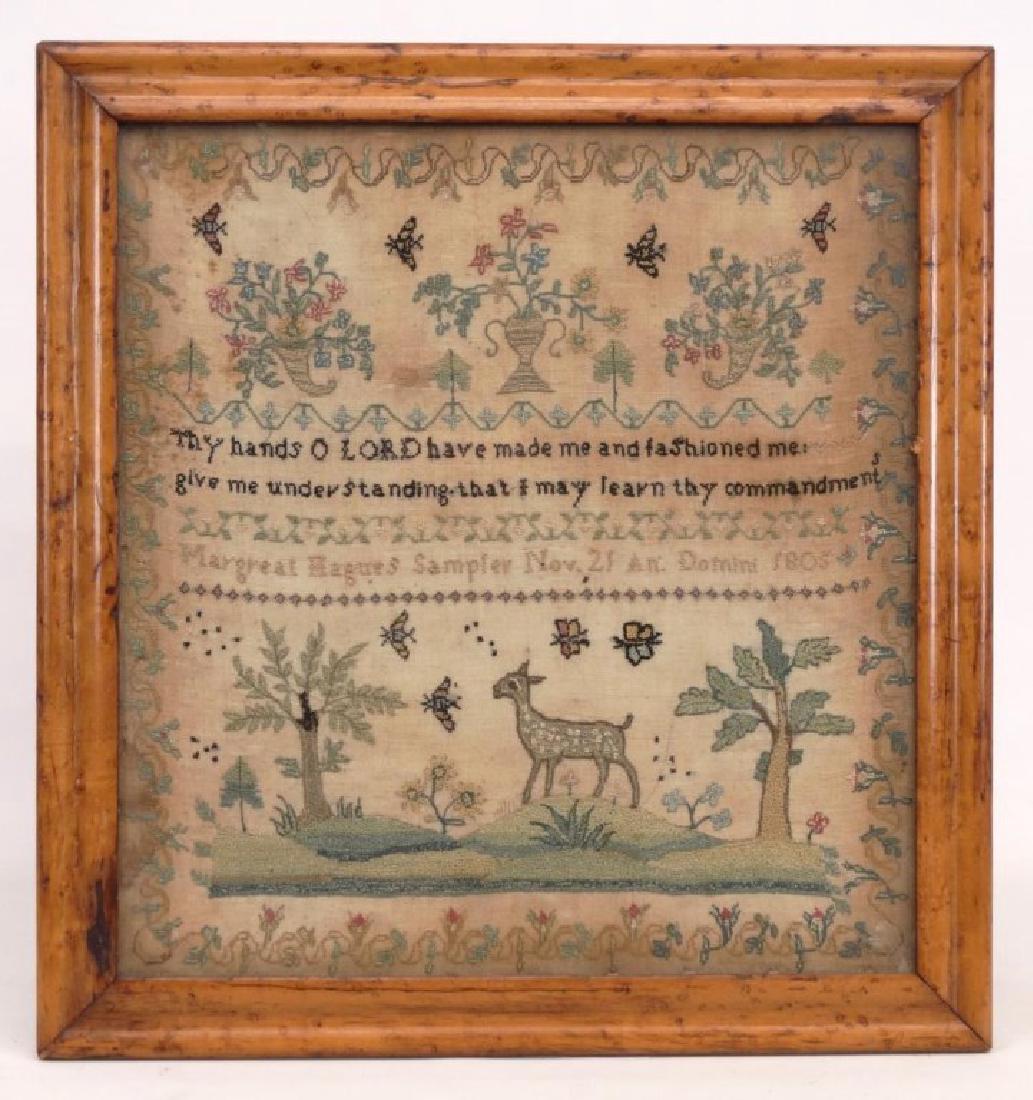 Thy hands O LORD have made me and fashioned me:
give me understanding that I may learn thy commandments
Margreat Hagues Sampler Nov. 21 An. Domini 1805